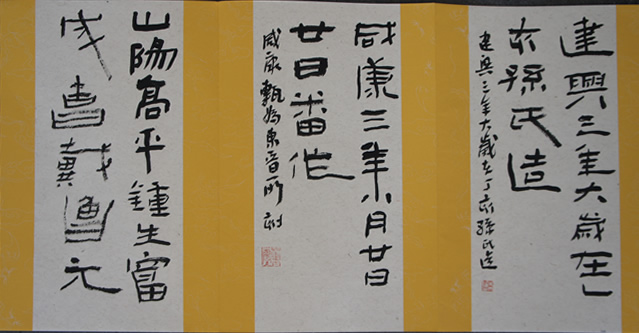 建興三年大歲在丁
亥孫氏造
建興三年大歲在丁亥孫氏造
咸康三年八月廿日
廿日番作
咸康甎為東晉所
山陽高平鍾生富
書
元